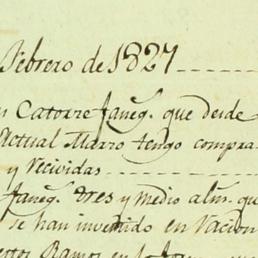 Febrero de 1827
Catorze faneg. que desde
Actual Marzo tengo compra
y recividas
faneg. tres y medio alm. qu
se han invertido en racion
Ramos en